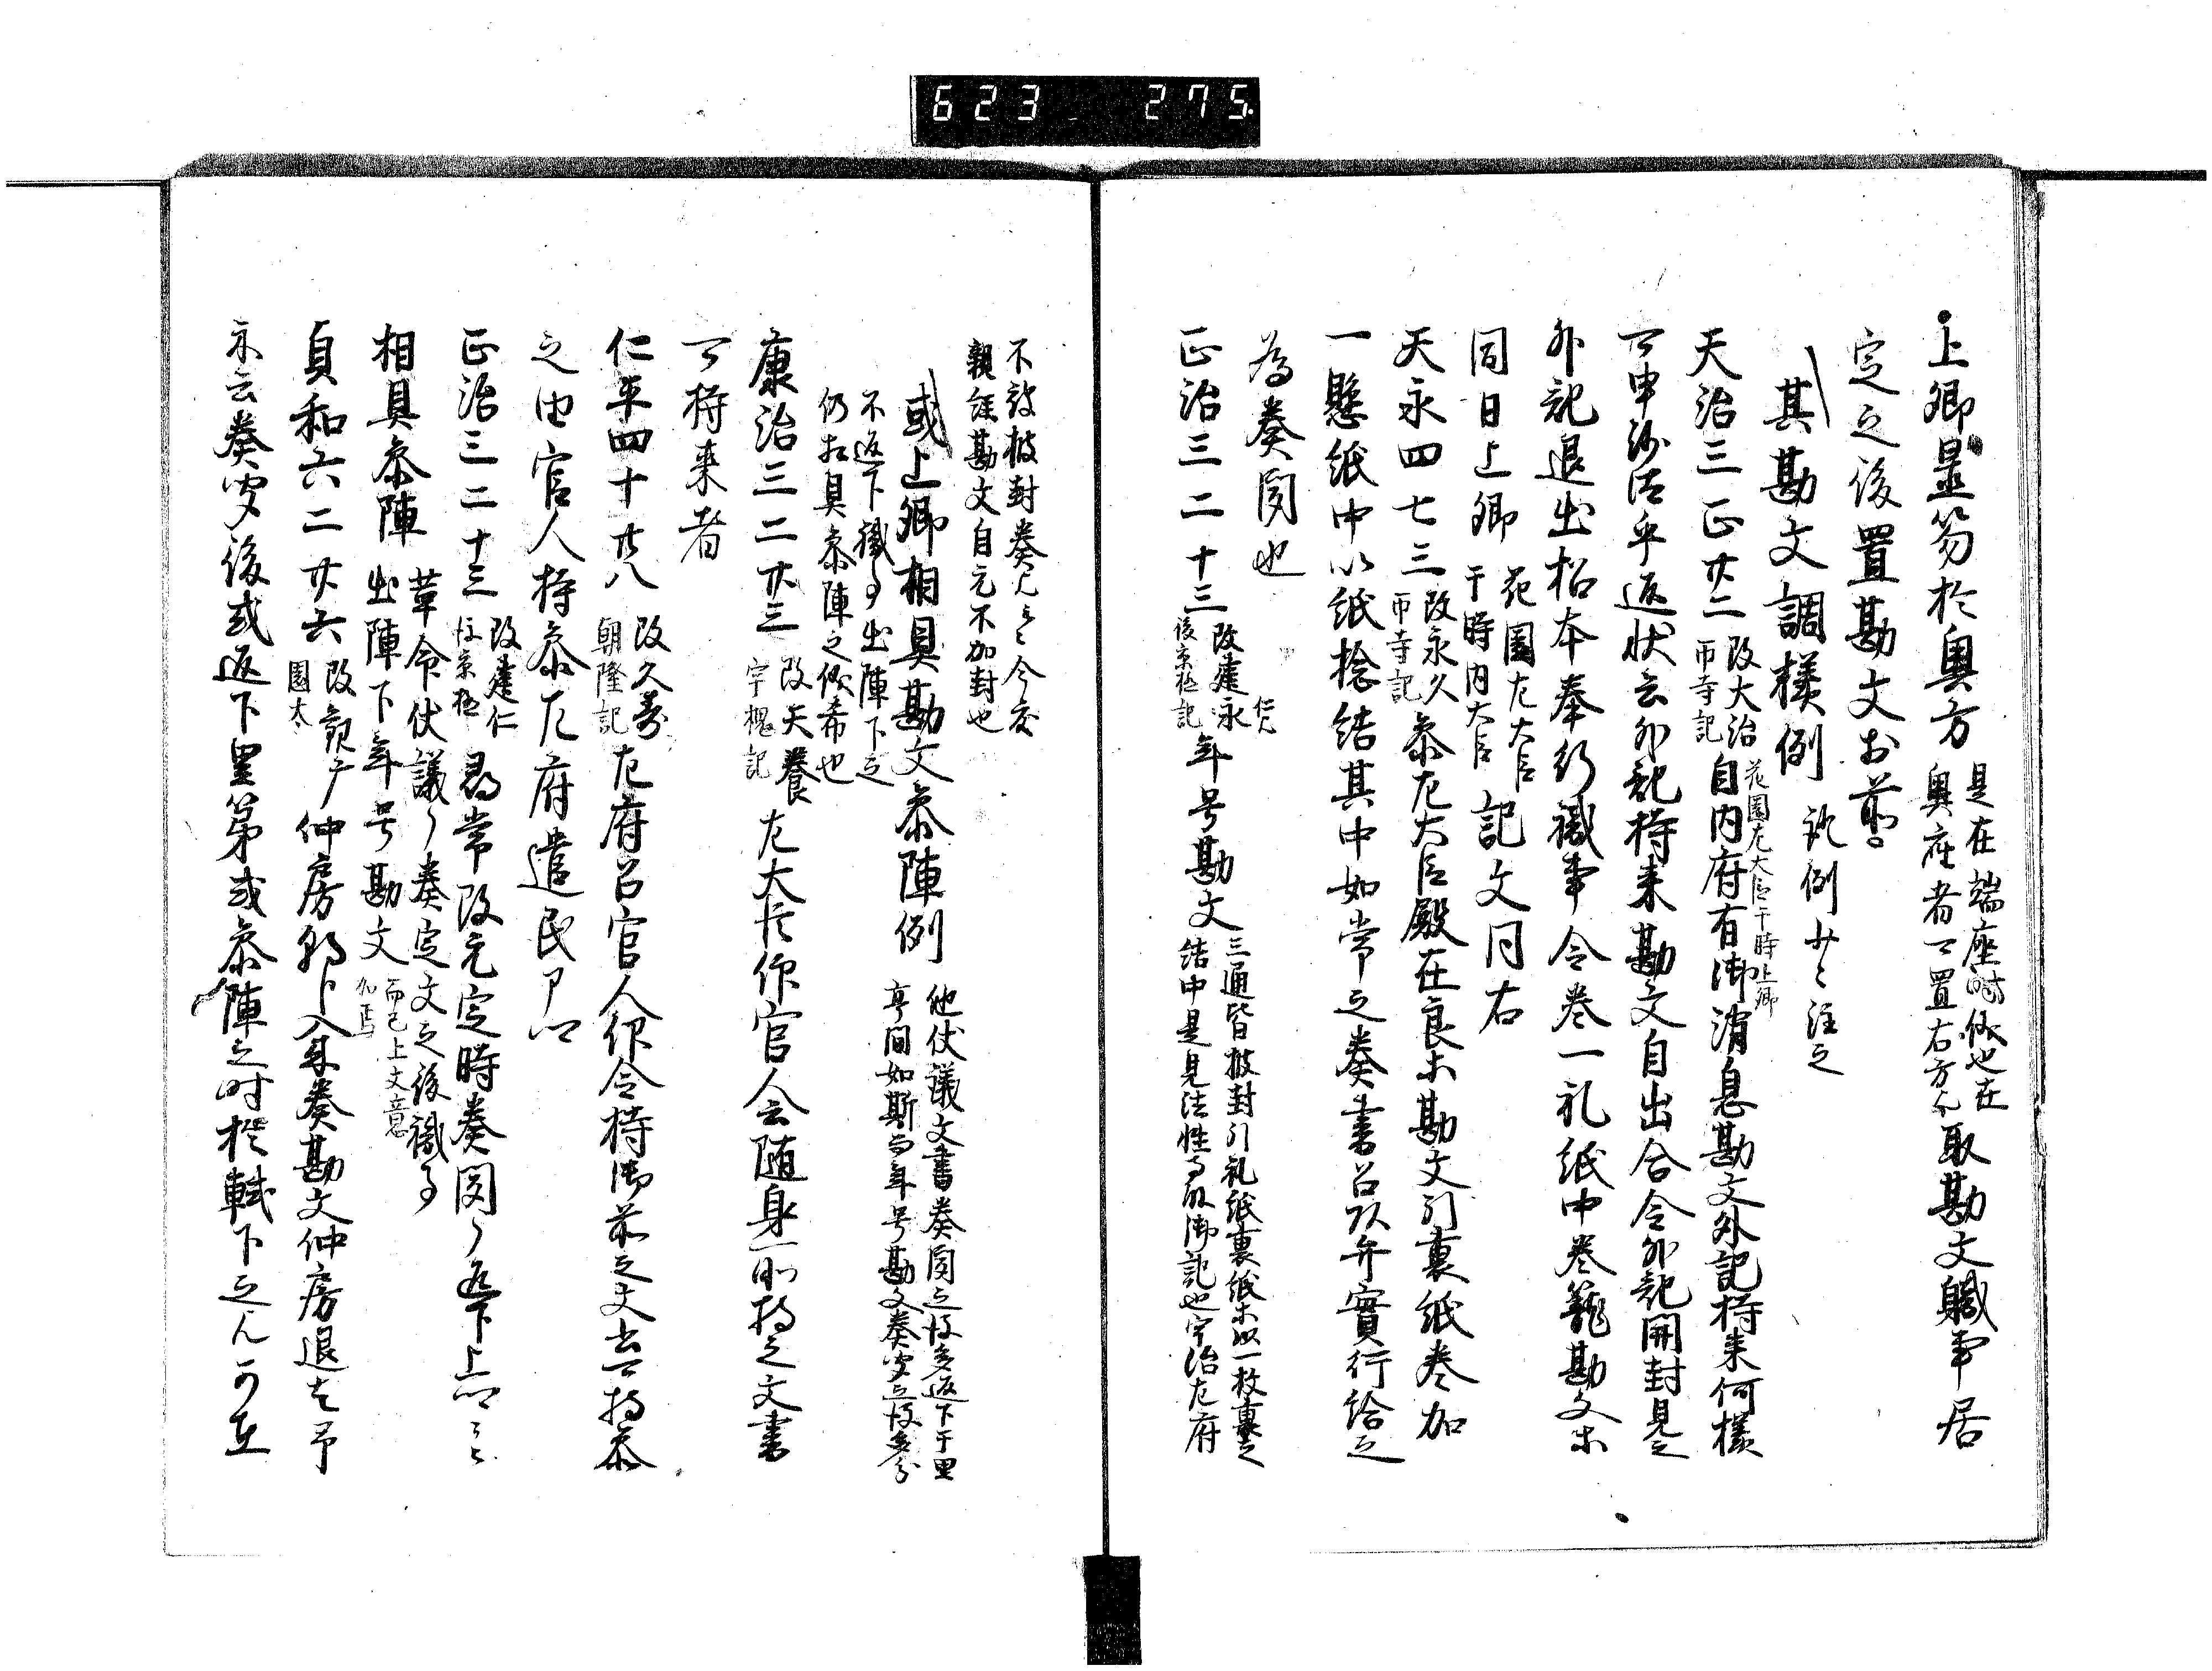 623 275
上卿置笏於奥方
是在端座時儀也在
奥座者可置右方
取勘文職事居
定之後置勘文於前
其勘文調様例
天治三正廿二
改大治
自内府有御消息勘文外記持来何様
花園左大臣于時上卿
可申沙汰乎返状云外記持来勘文自出合令外記開封見之
外記退出招本奉行職事令巻一礼紙中巻籠勘文等
同日上卿
花園左大臣
于時内大臣
記文同右
天永四七三
改永久
参左大臣殿在良等勘文引裏紙巻加
一懸紙中以紙捻結其中如常之奏書召頭弁実行給之
為奏聞也
正治三二十三
改建
後京極記
年号勘文
三通皆披封引礼紙裏紙等以一枚裏之
結中是見法性寺殿御記也宇治左府
不被披封奏之云々今度
親経勘文自元不加封也
或上卿相具勘文参陣例
他仗議文書奏聞之後多返下于里
亭間如斯
年号勘文奏聞之後多分
不返下職事出陣下之
仍相具参陣之儀希也
康治三二廿三
改天養
宇槐記
左大臣仰官人云随身所持之文書
可持来者
仁平四十廿八
改久寿
朝隆記
左府召官人仰令持御前之文書可持参
之由官人持参左府遣民部卿
正治三二十三
改建仁
後京極
尋常改元定時奏聞了返下上卿云々
革命仗議了奏定文之後職事
相具参陣
出陣下年号勘文
貞和六二廿六
改観応
園太
仲房朝臣入来奏勘文仲房退去予
示云奏聞後或返下里第或参陣之時於軾下之